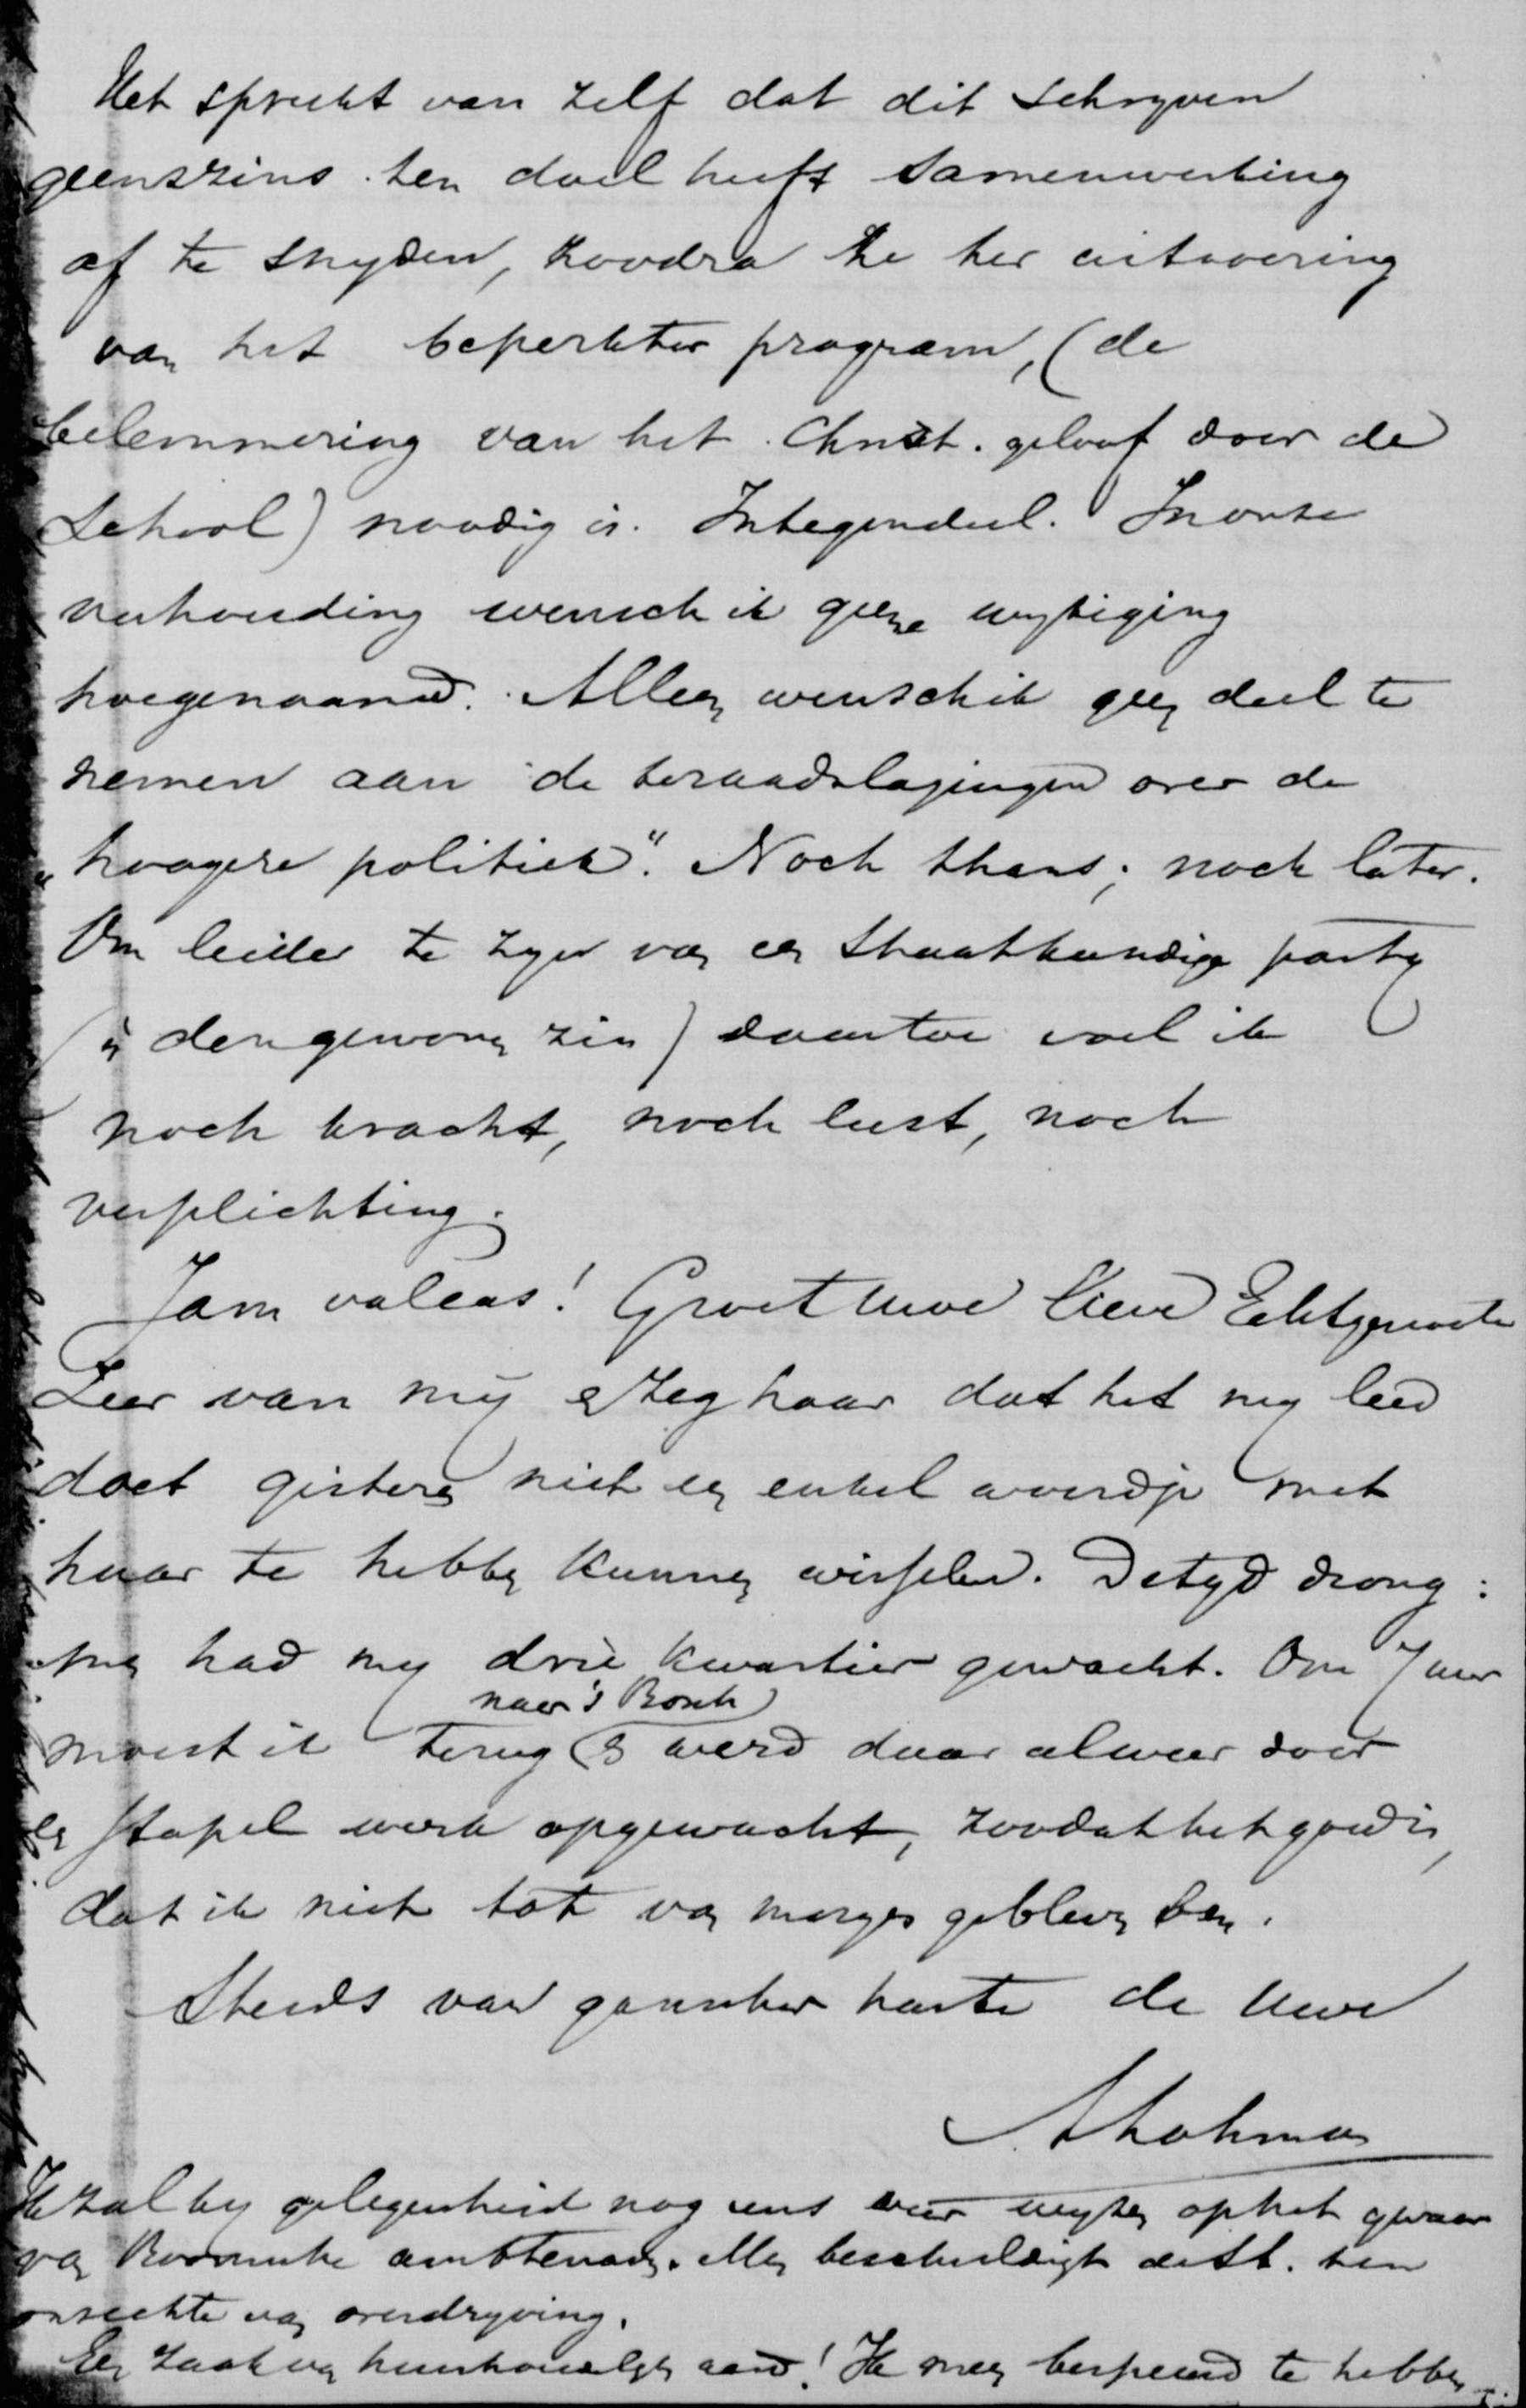 Het spreekt van zelf dat dit schryven
geenszins ten doel heeft samenwerking
af te snyden, zoodra ze ter uitvoering
van het beperkter program, (de
belemmering van het Christ. geloof door de
School) noodig is. Integendeel. In onze
verhouding wensch ik geene wyziging
hoegenaamd. Alleen wensch ik geen deel te
nemen aan de beraadslagingen over de
„hoogere politiek". Noch thans; noch later.
Om leider te zyn van een Staatkundige party
(in den gewonen zin) daartoe voel ik
noch kracht, noch lust, noch
verplichting.
Jam valeas! Groet Uwe lieve Echtgenoote
Zeer van mij & zeg haar dat het my leed
doet gisteren niet een enkel woordje met
haar te hebben kunnen wisselen. De tyd drong:
men had my drie kwartier gewacht. Om 7 uur
naar 's Bosch
moest ik terug & werd daar alweer door
een stapel werk opgewacht, zoodat het goed is,
dat ik niet tot van morgen gebleven ben.
Steeds van ganscher harte de Uwe
A Lohman
Ik zal by gelegenheid nog eens weer wyzen op het gevaar
van Roomsche ambtenaren. Men beschuldigt de St. ten
onrechte van overdryving.
Een zaak van huishoudelyken aard! Ik meen bespeurd te hebben